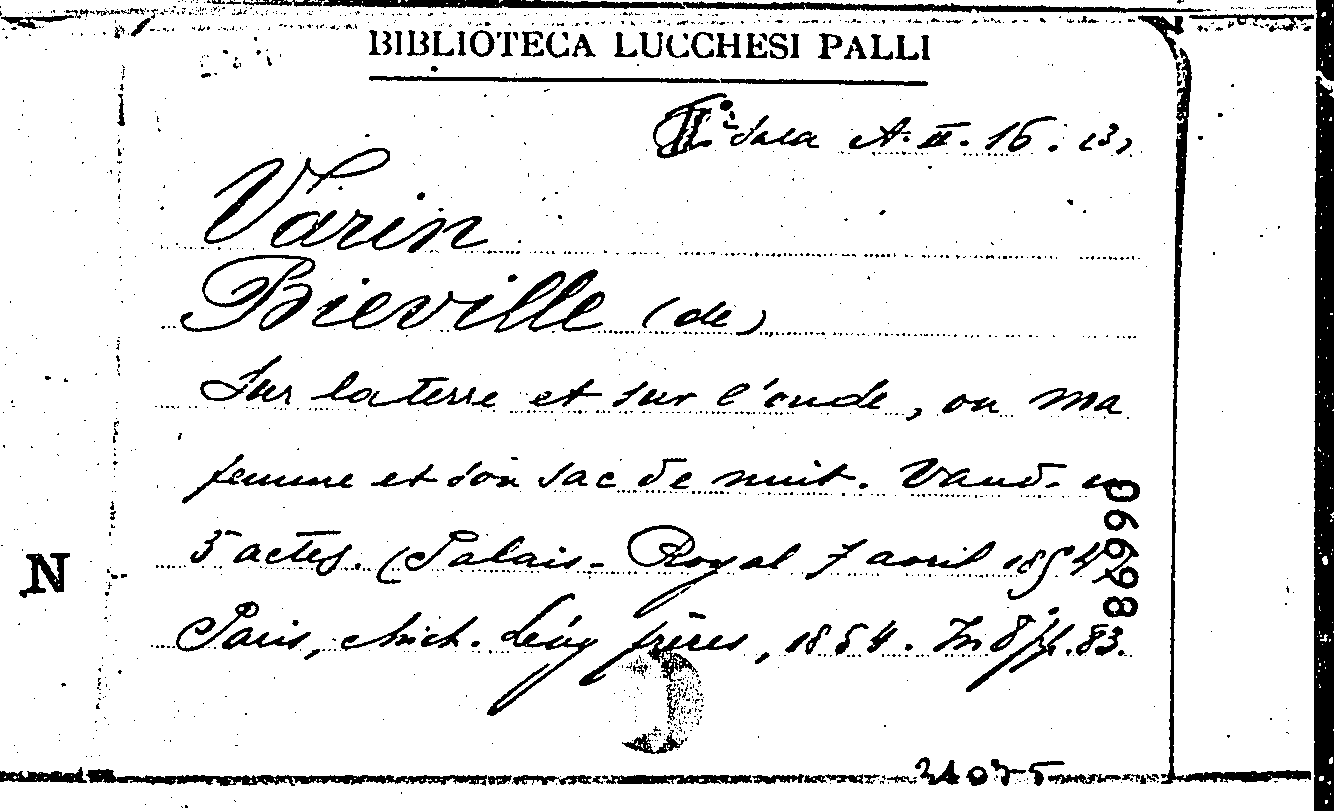 BIBLIOTECA LUCCHESI PALLI
IIª Sala A. II. 16. (3)
Varin
Bieville (de)
Sur la terre et sur l'onde, ou ma
femme et son sac de nuit. Vaud. en
3 actes. (Palais-Royal 7 avril 1854)
Paris, Mich. Lévy frères, 1854. In 8º pp. 83.
N
086998
21075